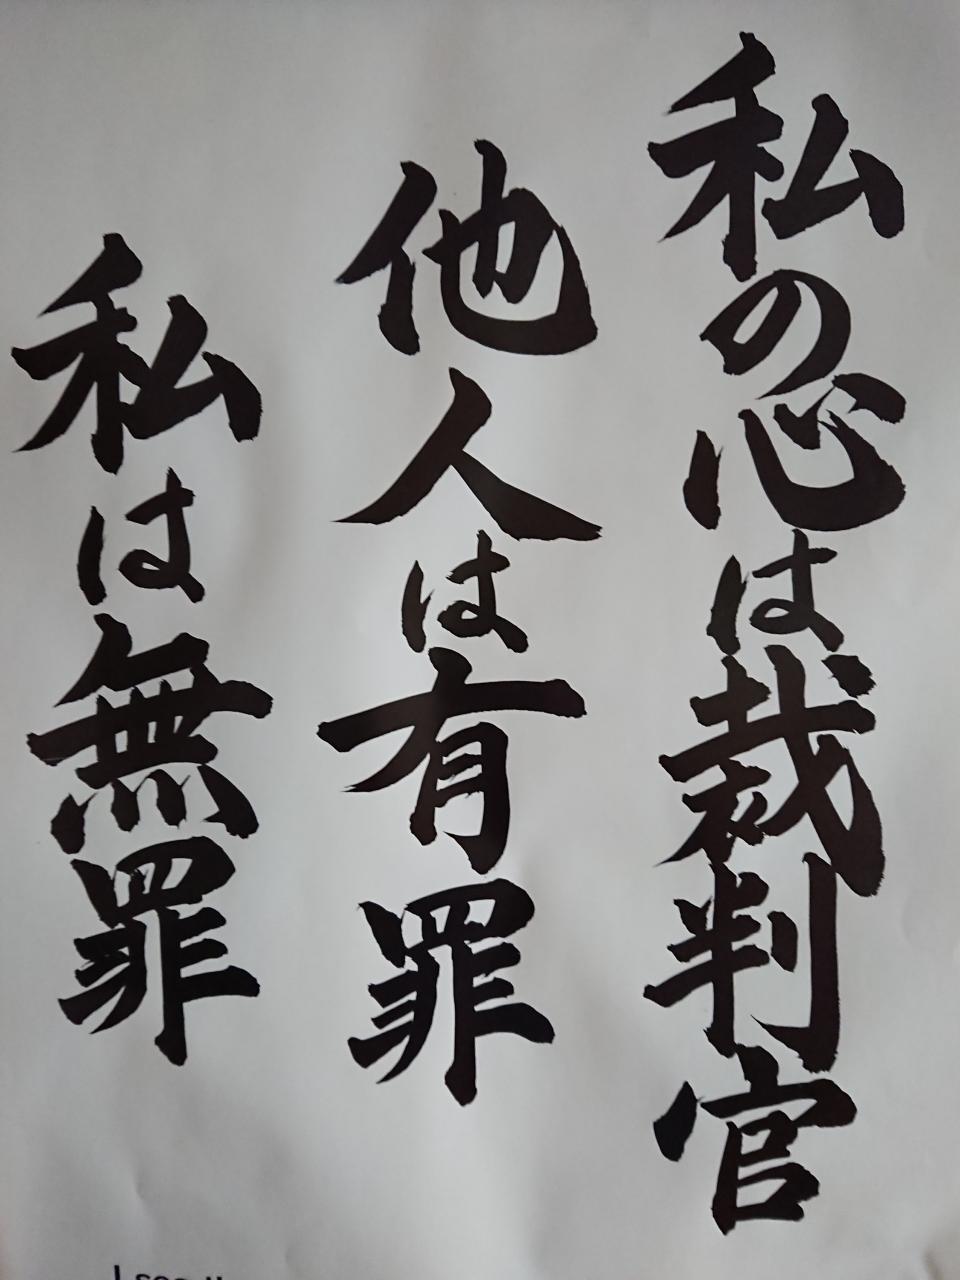 私の心は裁判官
他人は有罪
私は無罪
I see